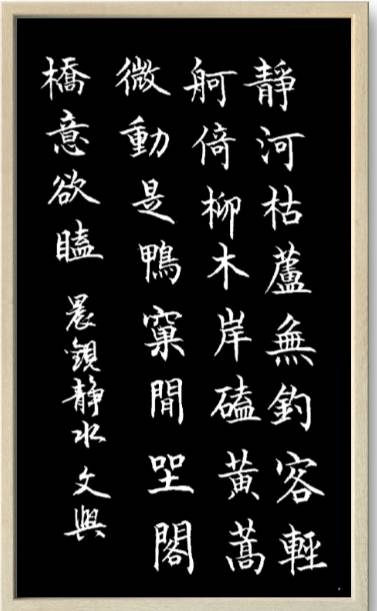 靜河枯蘆無釣客輕
舸倚柳木岸磕黃蒿
微動是鴨窠閒坐閣
橋意欲瞌 晨靜水 文與